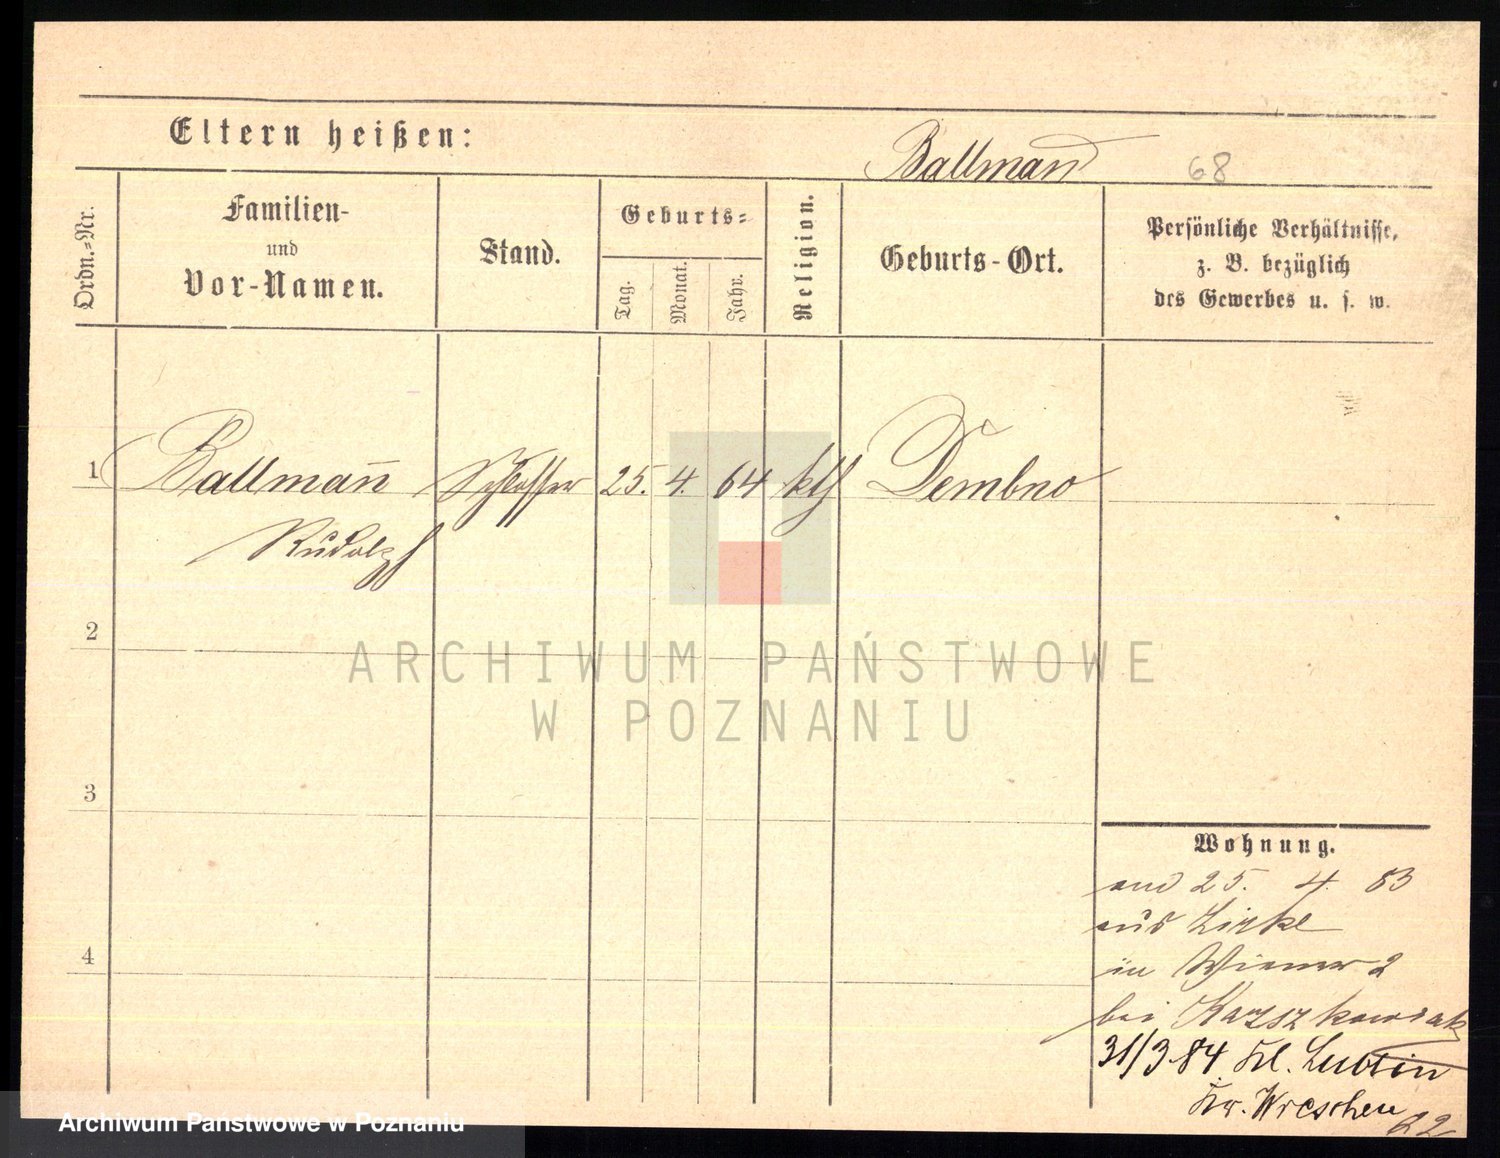 Eltern heißen:
Ballmann 68
Ordn.=Nr.
Familien-
und
Vor-Namen.
Stand.
Geburts=
Tag.
Monat.
Jahr.
Religion.
Geburts-Ort.
Persönliche Verhältnisse,
z. B. bezüglich
des Gewerbes u. s. w.
1 Ballmann Schlosser 25. 4. 64 kth Dembno
Rudolph
2
ARCHIWUM PAŃSTWOWE
W POZNANIU
3
4
Wohnung.
25. 4. 83
aus Zirke
in Wiener 2
bei
31/3 84 Kl.
Kr. Wreschen
Archiwum Państwowe w Poznaniu